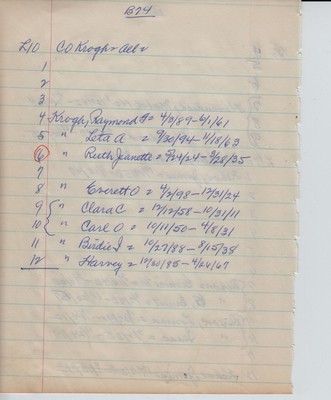 B74
L10 CO Krogh - All =
1
2
3
4 Krogh, Raymond A = 4/3/89 - 6/1/61
5 " Leta A = 9/30/94 - 4/18/63
6 " Ruth Jeanette = 9/24/24 - 9/28/35
7
8 " Everett O = 4/2/98 - 12/31/24
9 " Clara C = 12/12/58 - 10/31/11
10 " Carl O = 10/11/50 - 4/8/31
11 " Birdie I = 10/27/88 - 8/15/38
12 " Harvey = 12/20/85 - 4/26/67